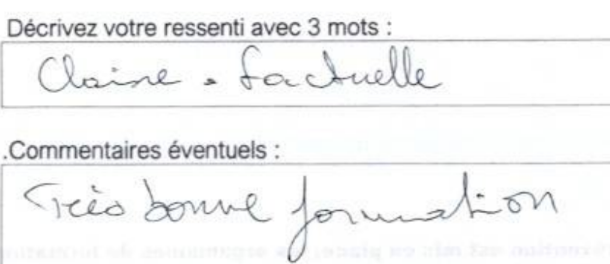 Décrivez votre ressenti avec 3 mots :
Claire . factuelle
.Commentaires éventuels :
Très bonne formation